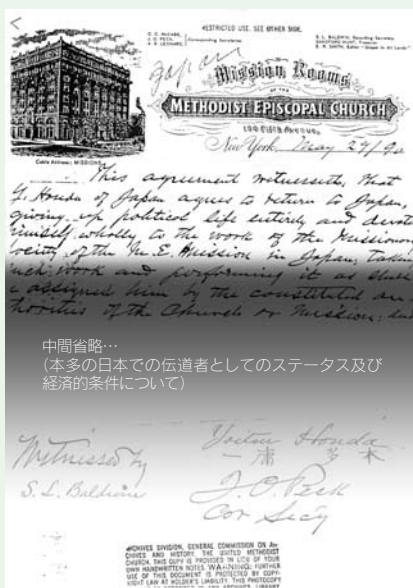 RESTRICTED USE. SEE OTHER SIDE.
C. C. McCABE,
J. O. PECK,
A. B. LEONARD,
Corresponding Secretaries
S. L. BALDWIN, Recording Secretary
SANDFORD HUNT, Treasurer
E. R. SMITH, Editor
Japan
Mission Rooms
OF THE
METHODIST EPISCOPAL CHURCH
150 FIFTH AVENUE,
New York, May 27/90
Cable Address: MISSIONS
This agreement witnesseth, that
Y. Honda of Japan agrees to return to Japan,
giving up political life entirely and devote
himself wholly to the work of the Missionary
Society of the M. E. Mission in Japan; taking
such work and performing it as shall
be assigned him by the constituted au-
thorities of the Church or Mission; and
中間省略…
(本多の日本での伝道者としてのステータス及び
経済的条件について)
Witnessed by
S. L. Baldwin
Yoitsu Honda
一庸多本
J. O. Peck
Cor Sec'y
ARCHIVES DIVISION, GENERAL COMMISSION ON AR-
CHIVES AND HISTORY, THE UNITED METHODIST
CHURCH. THIS COPY IS PROVIDED IN LIEU OF YOUR
OWN HANDWRITTEN NOTES. WARNING: FURTHER
USE OF THIS DOCUMENT IS PROTECTED BY COPY-
RIGHT LAW AT HOLDER'S LIABILITY. THIS PHOTOCOPY